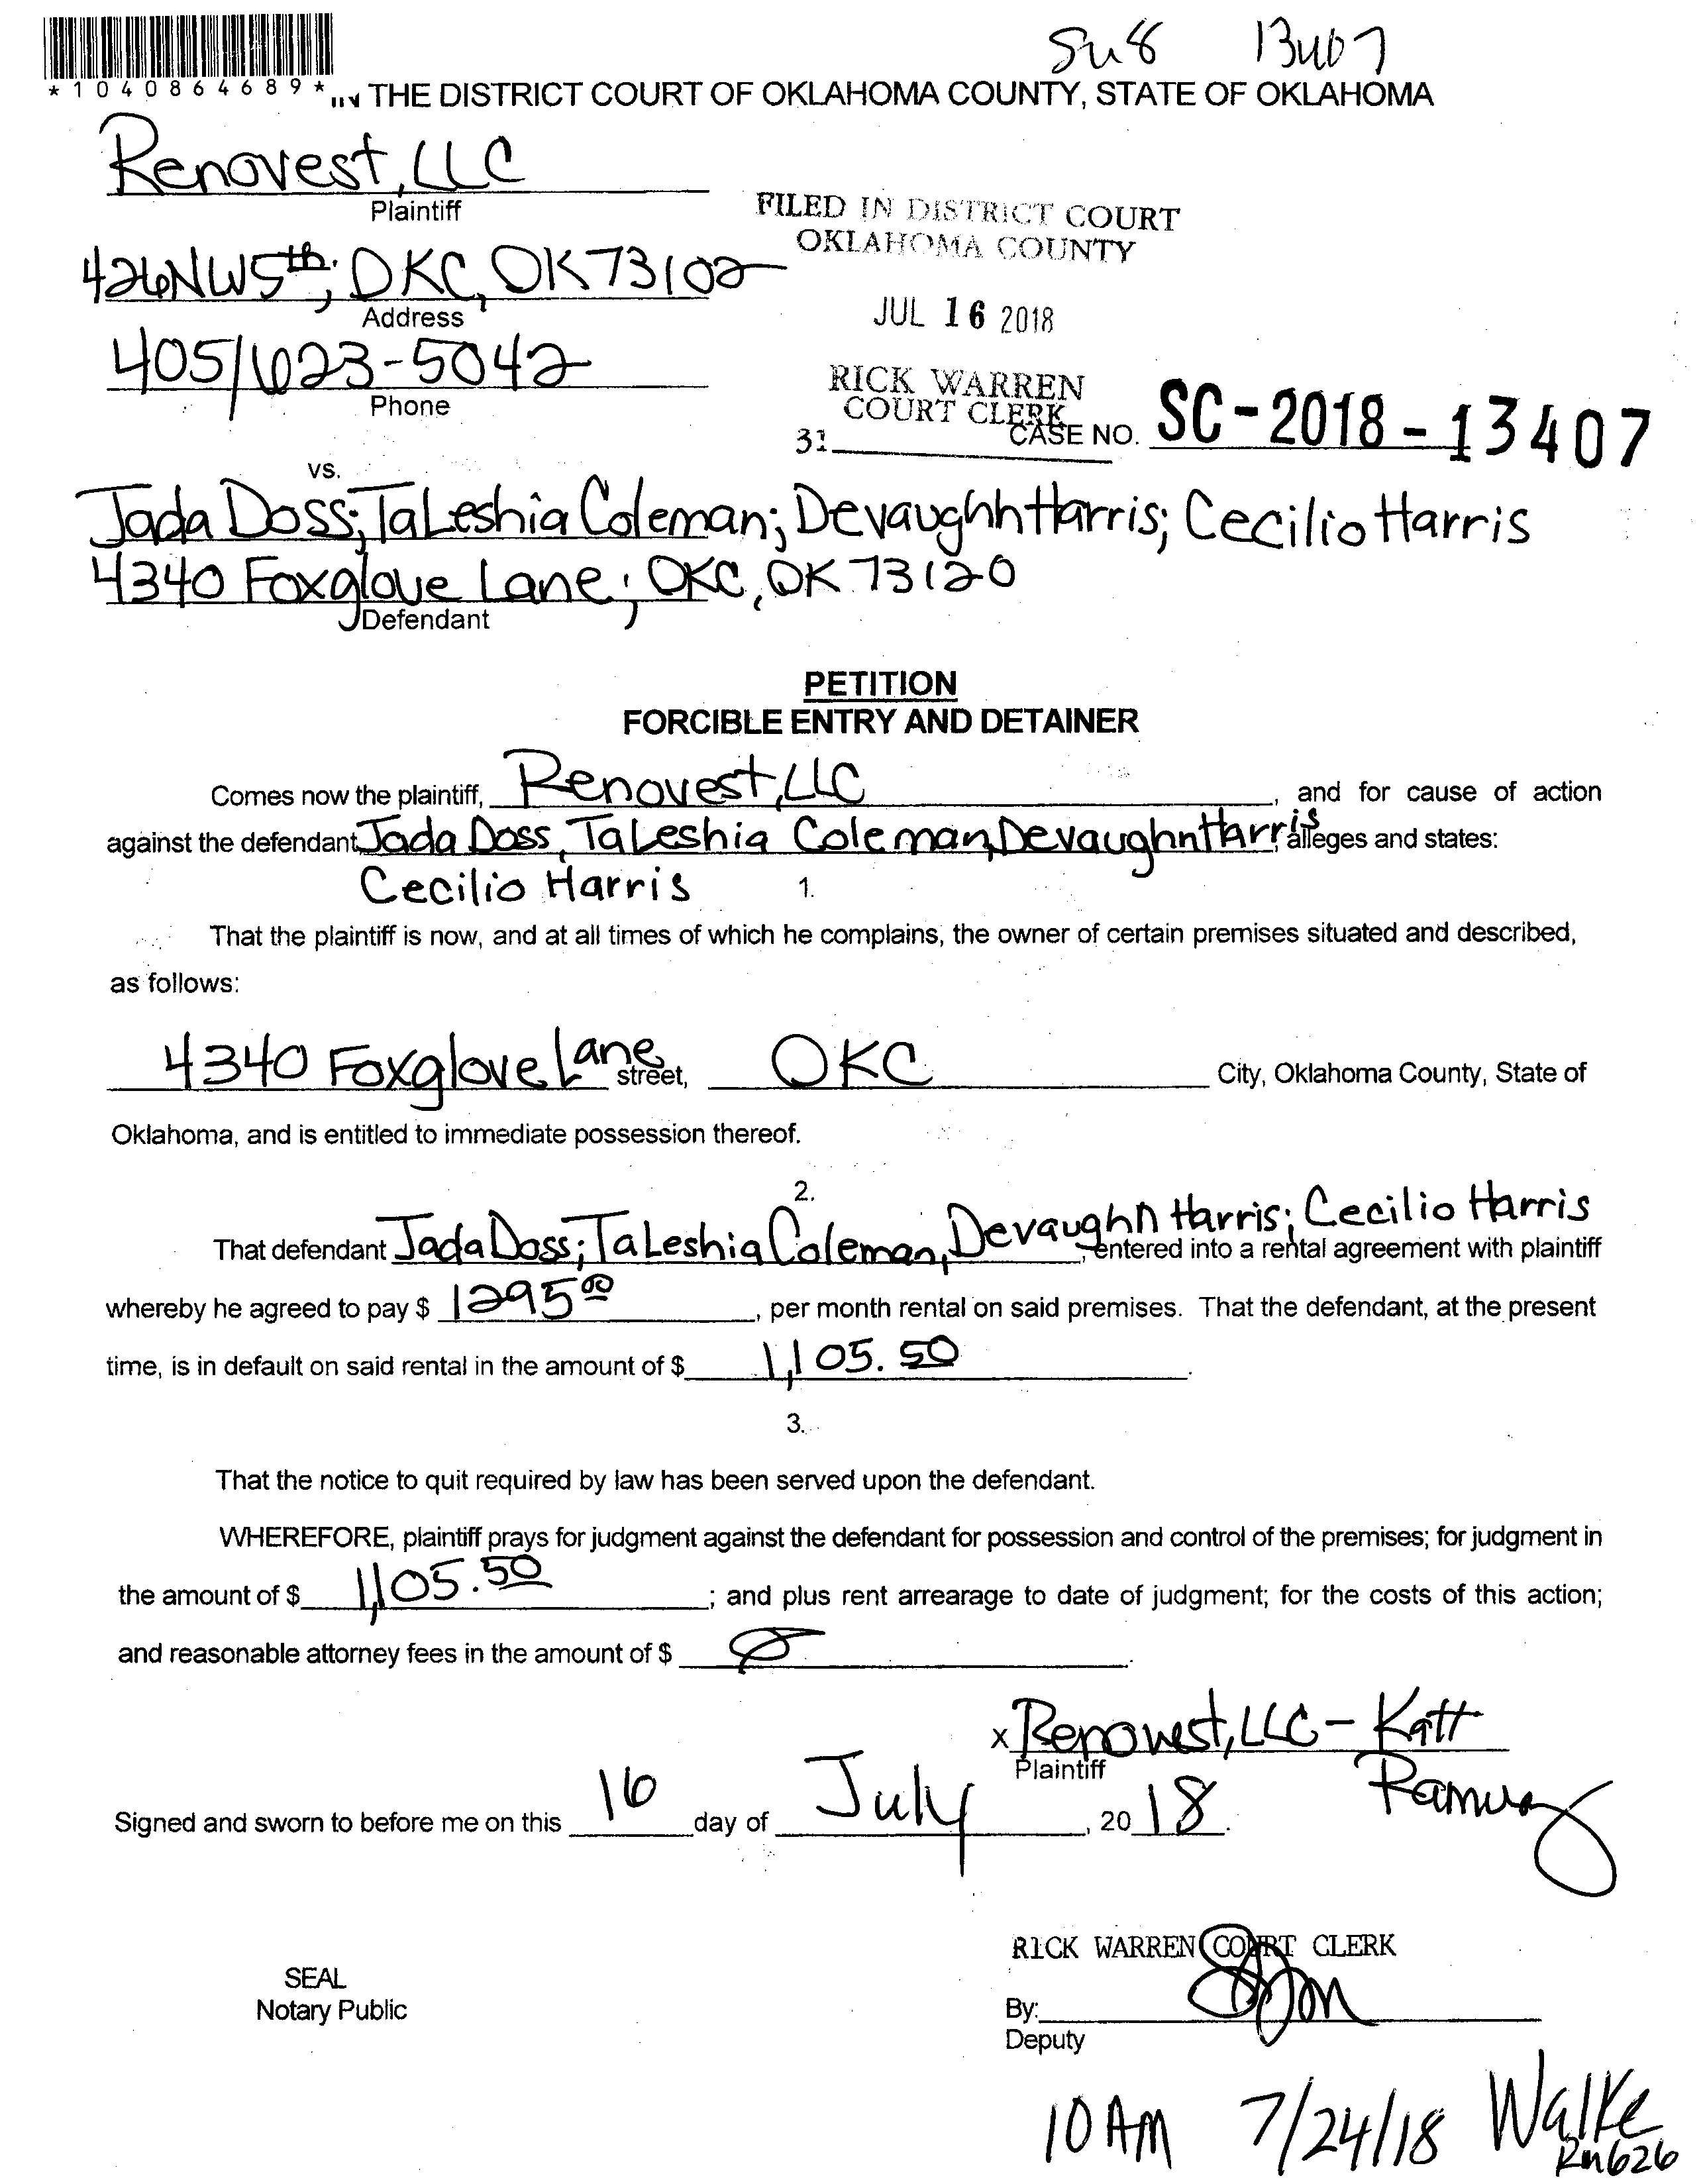 Su8 13407
*1040864689*
IN THE DISTRICT COURT OF OKLAHOMA COUNTY, STATE OF OKLAHOMA
Renovest, LLC
Plaintiff
FILED IN DISTRICT COURT
OKLAHOMA COUNTY
426 NW 5th; OKC, OK 73102
Address
JUL 16 2018
405/623-5042
Phone
RICK WARREN
COURT CLERK
31
CASE NO. SC-2018-13407
vs.
Jada Doss; TaLeshia Coleman; Devaughn Harris; Cecilio Harris
4340 Foxglove Lane; OKC, OK 73120
Defendant
PETITION
FORCIBLE ENTRY AND DETAINER
Comes now the plaintiff, Renovest, LLC, and for cause of action
against the defendant Jada Doss, TaLeshia Coleman, Devaughn Harris, alleges and states:
Cecilio Harris
1.
That the plaintiff is now, and at all times of which he complains, the owner of certain premises situated and described,
as follows:
4340 Foxglove Lane street, OKC City, Oklahoma County, State of
Oklahoma, and is entitled to immediate possession thereof.
2.
That defendant Jada Doss; TaLeshia Coleman, Devaughn Harris; Cecilio Harris, entered into a rental agreement with plaintiff
whereby he agreed to pay $ 1295 00, per month rental on said premises. That the defendant, at the present
time, is in default on said rental in the amount of $ 1,105.50.
3.
That the notice to quit required by law has been served upon the defendant.
WHEREFORE, plaintiff prays for judgment against the defendant for possession and control of the premises; for judgment in
the amount of $ 1,105.50; and plus rent arrearage to date of judgment; for the costs of this action;
and reasonable attorney fees in the amount of $
x Renovest, LLC - Katt
Plaintiff
Ramirez
Signed and sworn to before me on this 16 day of July, 2018.
RICK WARREN COURT CLERK
SEAL
Notary Public
By:
Deputy
10 AM 7/24/18 Walke
Rm 626